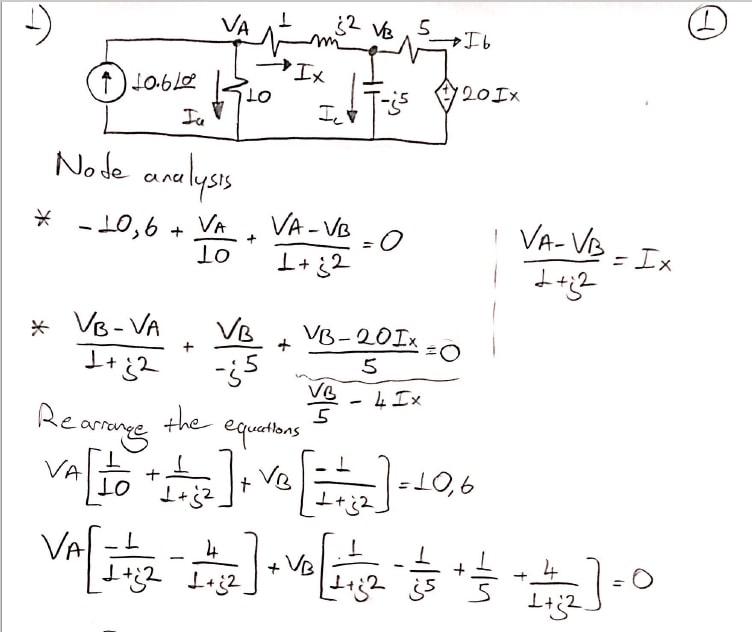 1)
①
VA 1 j2 VB 5 → Ib
10.6∠0° Ia 10 Ix Ic -j5 20Ix
Node analysis
* -10,6 + VA/10 + (VA-VB)/(1+j2) = 0 | (VA-VB)/(1+j2) = Ix
* (VB-VA)/(1+j2) + VB/(-j5) + (VB-20Ix)/5 = 0
VB/5 - 4Ix
Rearrange the equations
VA[1/10 + 1/(1+j2)] + VB[-1/(1+j2)] = 10,6
VA[-1/(1+j2) - 4/(1+j2)] + VB[1/(1+j2) - 1/j5 + 1/5 + 4/(1+j2)] = 0